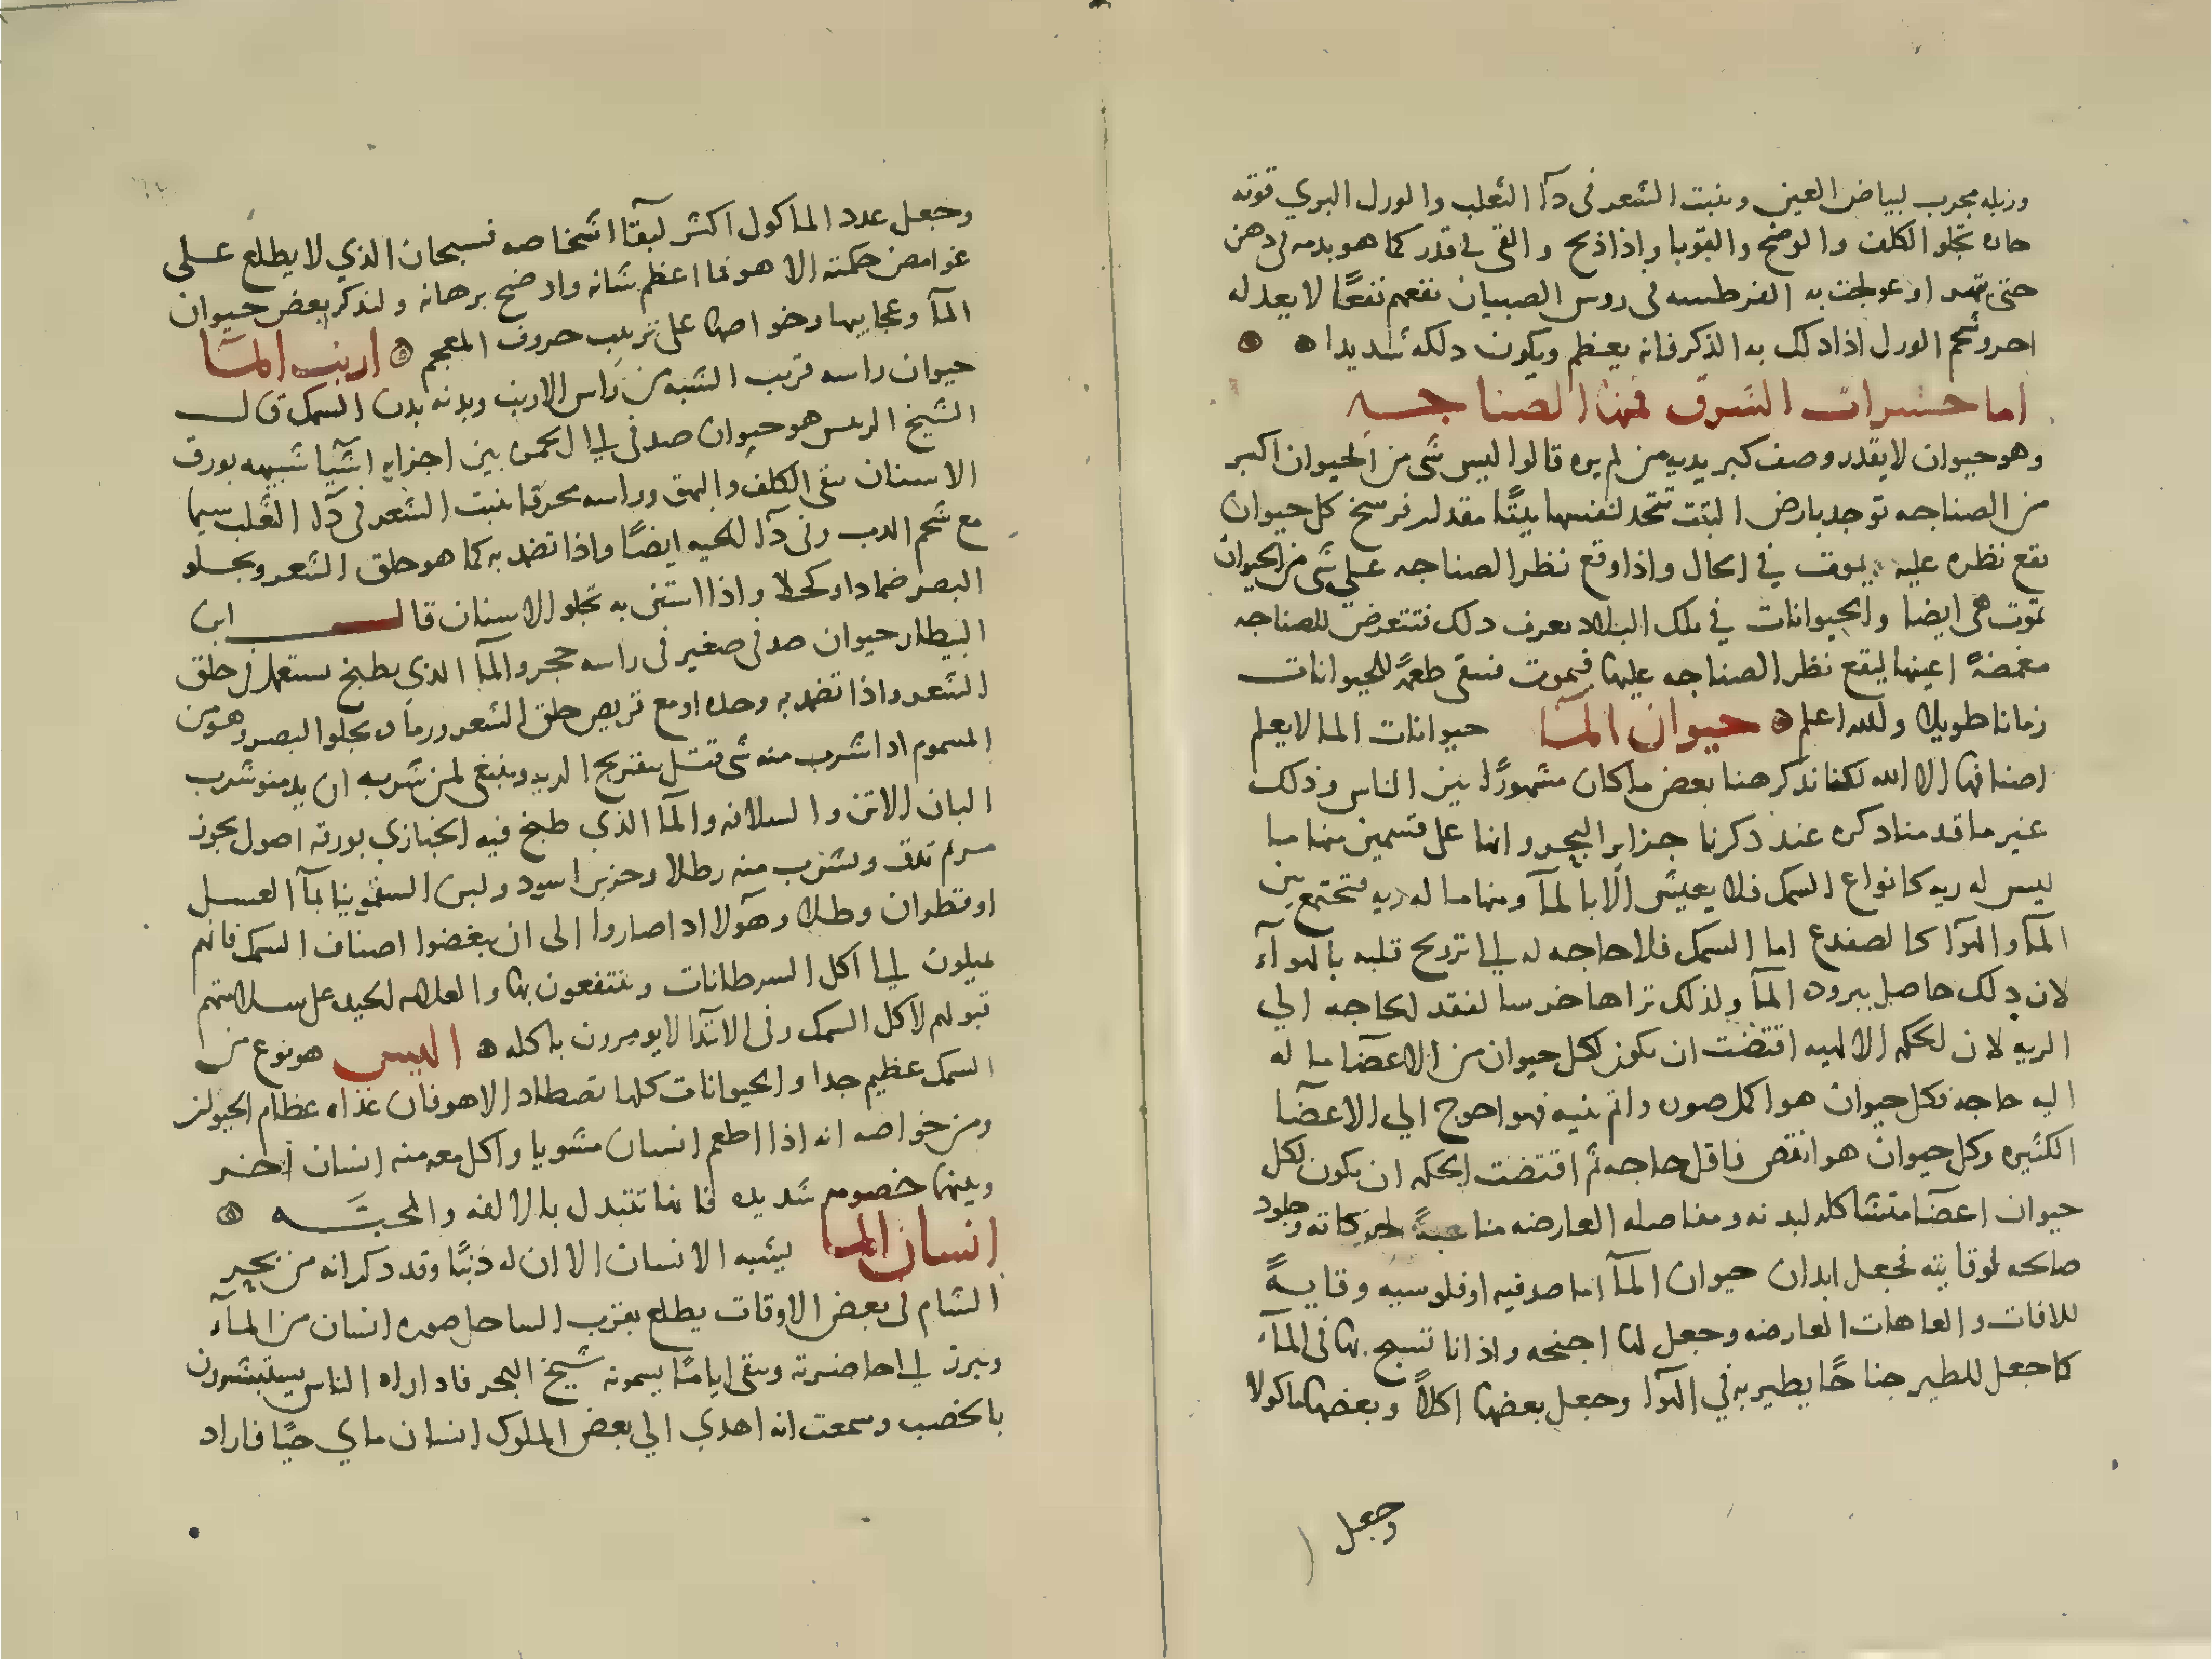 وزبله مجرب لبياض العين وينبت الشعر في دآ الثعلب والورل البري قوته
حاده تجلو الكلف والوضح والقوبا واذا ذبح والقي في قدر كما هو بدمه في دهن
حتى او عولجت به في روس الصبيان نفعهم نفعًا لا يعدله
احر وشحم الورل اذا دلك به الذكر فانه يعظم ويكون دلكه شديدا
اما حشرات الشرق فمنها الصناجـــه
وهو حيوان لا يقدر وصف كبر بدنه من لم يره قالوا ليس شى من الحيوان اكبر
من الصناجه توجد بارض التبت تتخد لنفسها بيتًا مقدار فرسخ كل حيوان
يقع نظره عليه يموت في الحال واذا وقع نظر الصناجه على شى من الحيوان
تموت هى ايضا والحيوانات في تلك البلاد تعرف دلك فتتعرض للصناجه
مغمضةً اعينها ليقع نظر الصناجه عليها فيموت فتبقى طعمةً للحيوانات
زمانا طويلا والله اعلم حيوان المآ حيوانات الما لا يعلم
اصنافها الا الله لكنا نذكر هنا بعض ما كان مشهورًا بين الناس وذلك
غير ما قدمنا دكره عند دكرنا جزاير البحر وانها على قسمين منها ما
ليس له ريه كانواع السمك فلا يعيش الا بالمآ ومنها ما له ريه فتجتمع بين
المآ والهوآ كالضفدع اما السمك فلا حاجه له الي تروح قلبه بالهوآء
لان دلك حاصل ببروده المآ ولذلك تراها خرسا لفقد لحاجه الي
الريه لان لحكمه الالهيه اقتضت ان يكون لكل حيوان من الاعضا ما له
اليه حاجه فكل حيوان هو اكمل صوره واتم بنيه فهو احوج الي الاعضآ
الكثيره وكل حيوان هو انقص فاقل حاجه ثم اقتضت الحكمه ان يكون لكل
حيوان اعضآ متشاكله لبدنه ومفاصله العارضه مناسبةً لحركاته وجلود
صالحه لوقايته فجعل ابدان حيوان المآ اما صدفيه او فلوسيه وقايــةً
للافات والعاهات العارضه وجعل لها اجنحه واذانا تسبح بها في المآء
كما جعل للطير جناحًا يطير به في الهوآ وجعل بعضها اكلاً وبعضها ماكولا
وجعل
وجعل عدد الماكول اكثر لبقآ اشخاصه فسبحان الذي لا يطلع علـى
غوامض حكمته الا هو فما اعظم شانه واوضح برهانه ولنذكر بعض حيوان
المآ وعجايبها وخواصها على ترتيب حروف المعجم ارنب المـآ
حيوان راسه قريب الشبه من راس الارنب وبدنه بدن السمك قالـــ
الشيخ الريس هو حيوان صدفي الي الحمره بين اجزايه اشيآ شبيهه بورق
الاسنان ينقى الكلف والبهق وراسه محرقا ينبت الشعر في دآ الثعلب سيما
مع شحم الدب وفى دآ الحيه ايضًا واذا تضمد به كما هو حلق الشعر ويجـلو
البصر ضمادا وكحلا واذا استنى به تجلو الاسنان قالـــــ ابن
البيطار حيوان صدفي صغير في راسه حجر والمآ الذي يطبخ يستعمل في حلق
الشعر واذا تضمد به وحده او مع قريص حلق الشعر ورماده يجلو البصر وهو من
المسموم ادا شرب منه شى قتـل بتقريح الريه وينبغي لمن شربه ان يدمنو شرب
البان الاتن والمآ الذي طبخ فيه الخبازي بورقه اصول بخور
مريم تدق ويشرب منه رطلا وخربق اسود ولبن السقمونيا بمآ العسـل
او قطران وطلا وهولا ادا صاروا الى ان يبغضوا اصناف السمك فانهم
يميلون الي اكل السرطانات وينتفعون بها والعلامه لجيده على سلامتهم
قبولهم لاكل السمك وفى الابتدا لا يومرون باكله البيس هو نوع من
السمك عظيم جدا والحيوانات كلها تصطاد الا هو فان غذاه عظام الحيوان
ومن خواصه انه اذا اطعم انسان مشويا واكل معه منه انسان اخـر
وبينهما خصومه شديده فانها تتبدل بالالفه والمحبــه
انسان المـا يشبه الانسان الا ان له ذنبًا وقد دكر انه من بحير
الشام في بعض الاوقات يطلع بقرب الساحل صوره انسان من المآء
ويبرز الي احاضرته ويبقى اياما يسمونه شيخ البحر فادا راه الناس يستبشرون
بالخصب وسمعت انه اهدي الي بعض الملوك انسان ماي حيًا فاراد